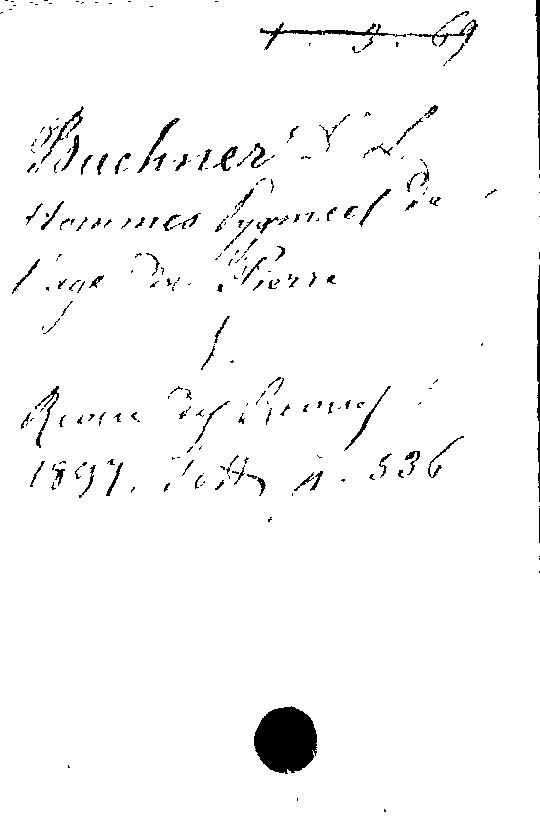 1 . 3 . 69
Buchner Dr L.
Hommes Pygmees de
l'age de Pierre
Revue des Revues
1897. p. 536